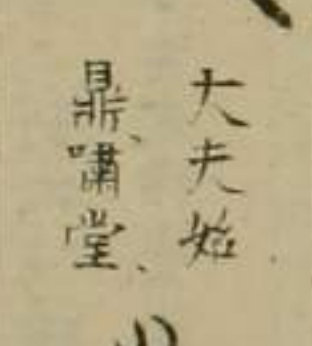 大夫始
鼎、嘯堂、